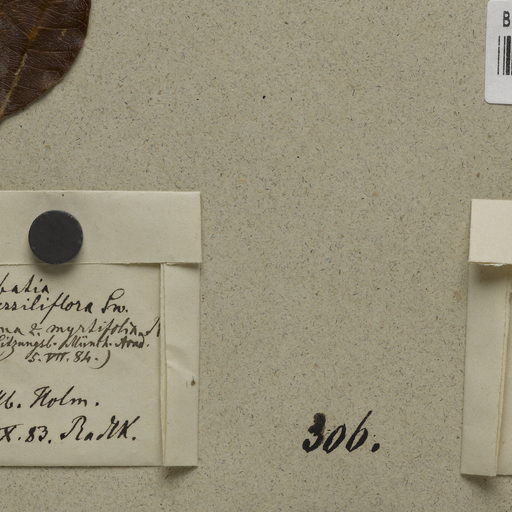 B
batia
essiliflora Sw.
ma & myrtifolia
Sitzungsb. Münch. Acad.
5. VII. 84.)
Hb. Holm.
IX. 83. Radlk.
306.